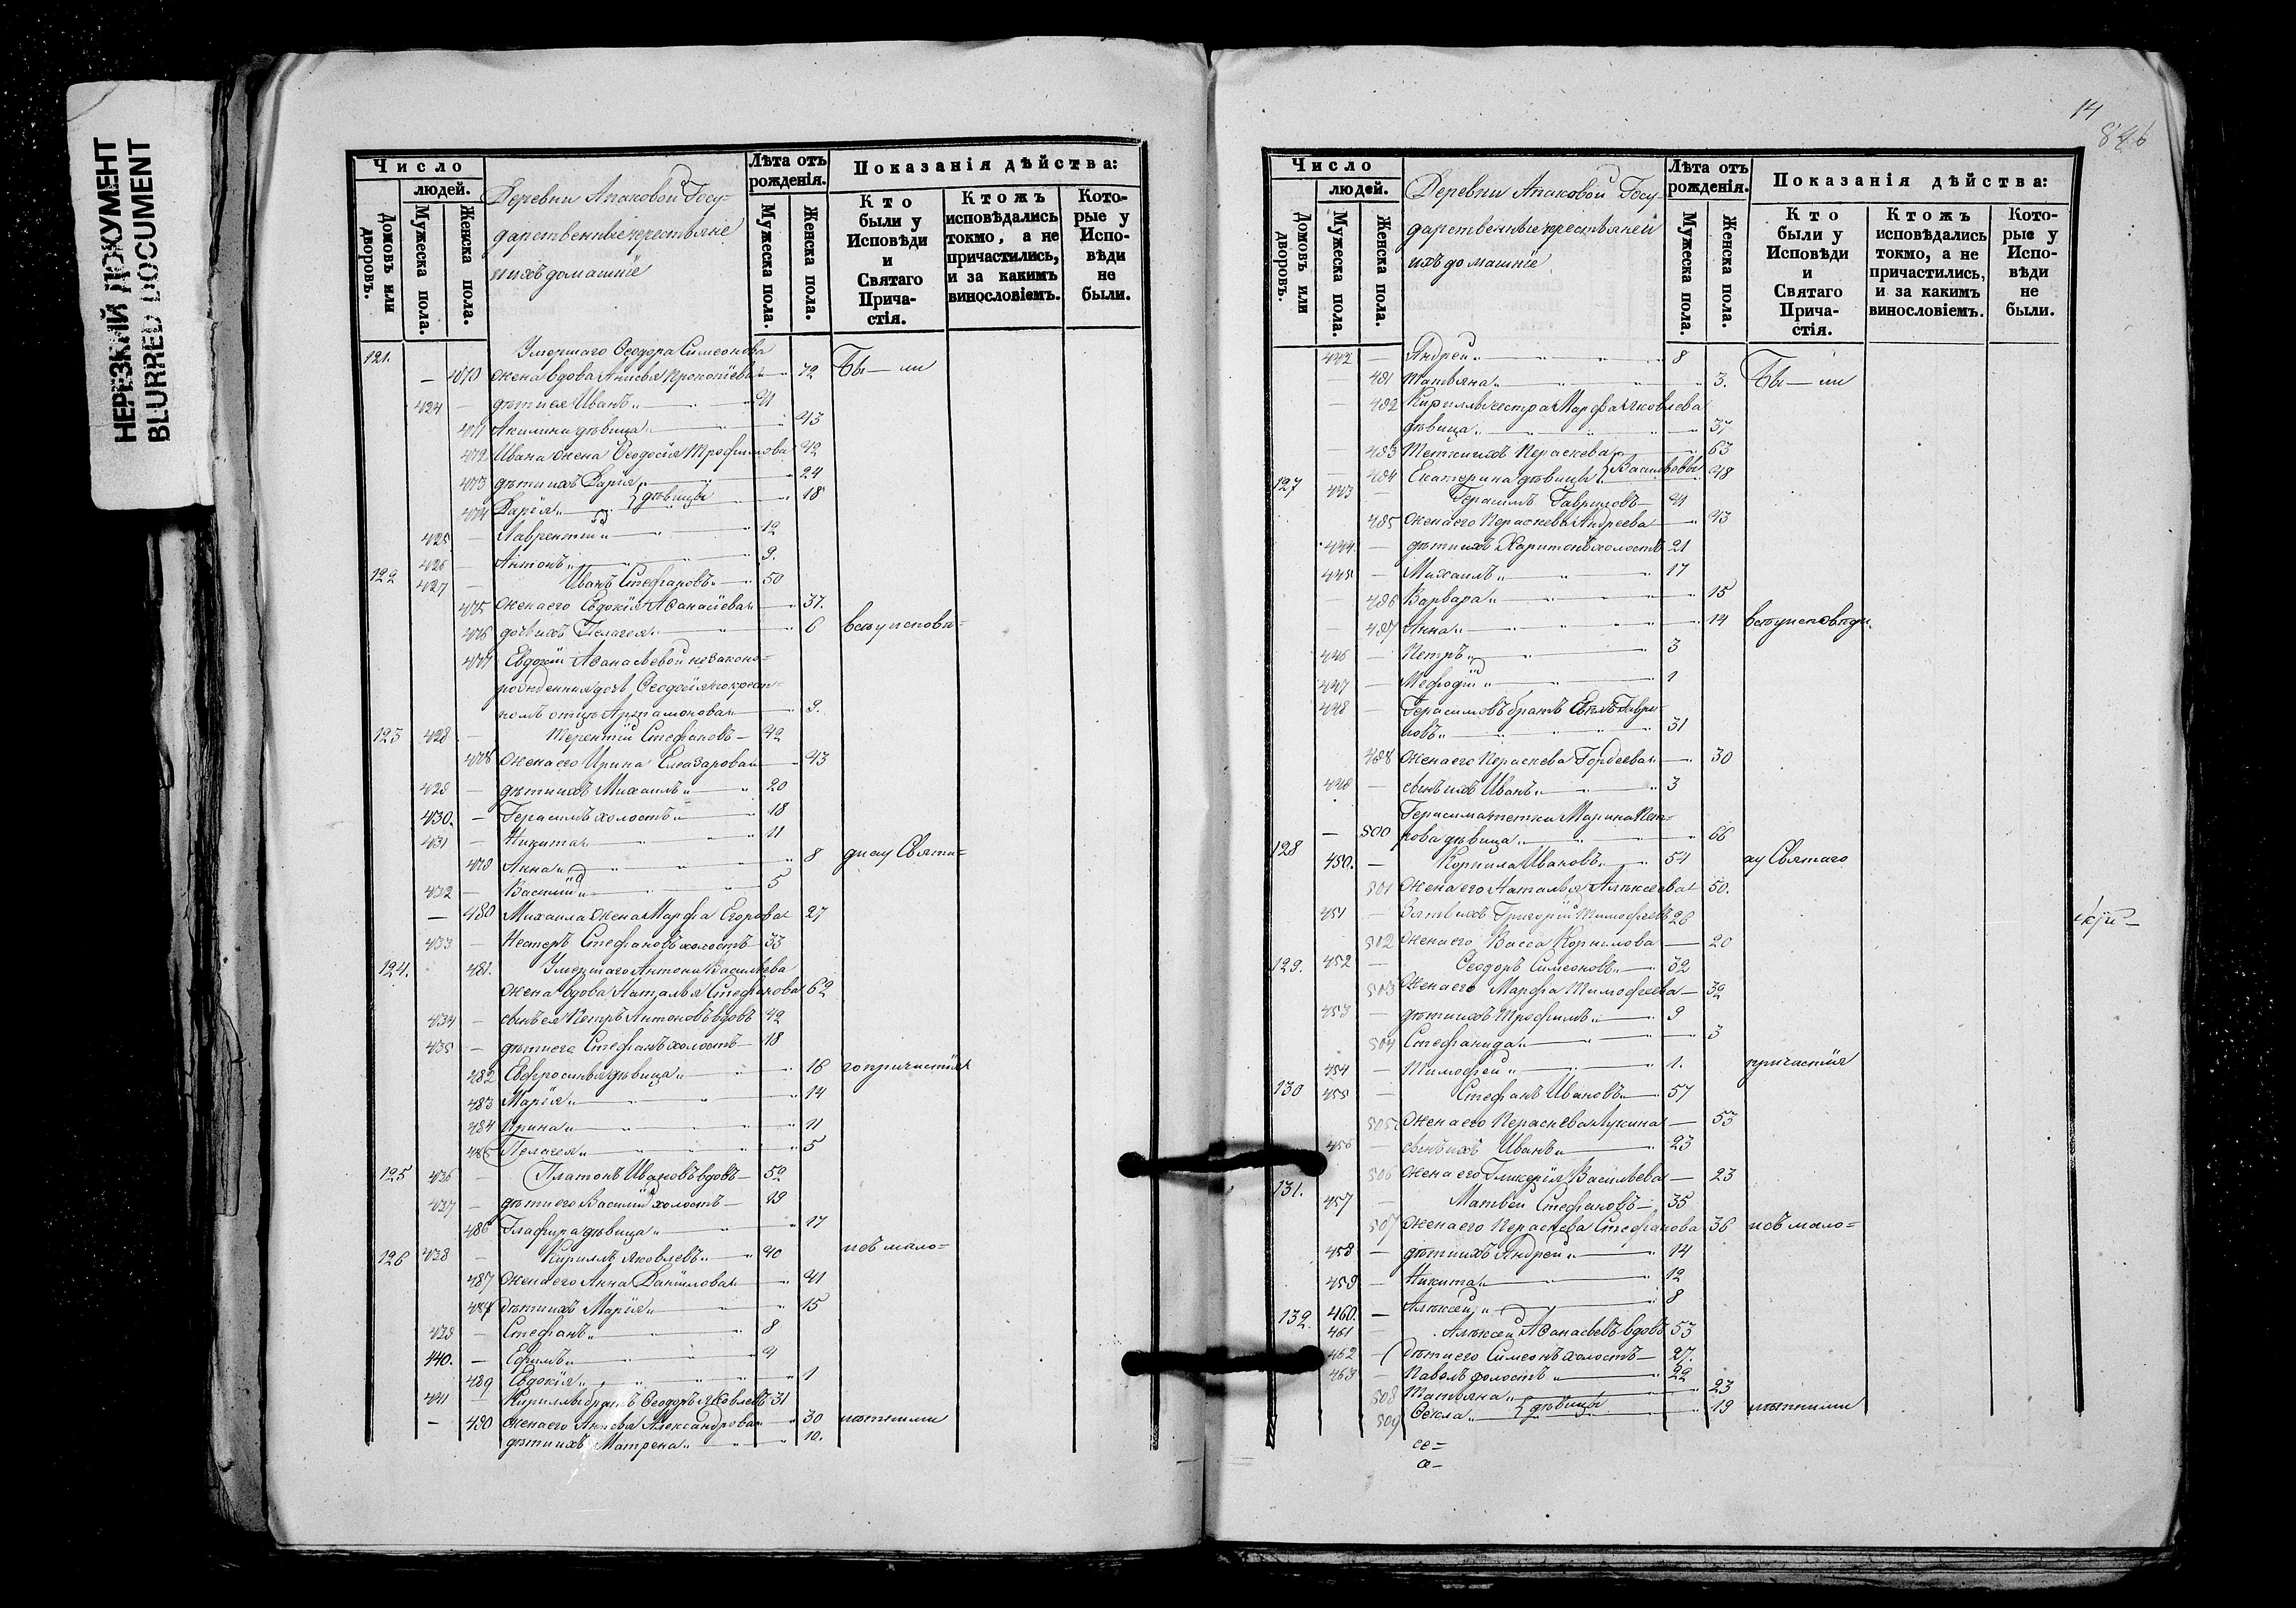 НЕРЕЗКИЙ ДОКУМЕНТ
BLURRED DOCUMENT
Число
людей.
Домовъ или дворовъ.
Мужеска пола.
Женска пола.
Деревни Апаковой Госу-
дарственные крестьяне
и ихъ домашніе
Лѣта отъ рожденія.
Мужеска пола.
Женска пола.
Показанія дѣйства:
Кто были у Исповѣди и Святаго Причастія.
Ктожъ исповѣдались токмо, а не причастились, и за какимъ винословіемъ.
Которые у Исповѣди не были.
121. Умершаго Ѳеодора Симеонова
— 470 жена вдова Анисья Прокопіева 72 Бы— ли
424 — дѣти ея Иванъ 41
471 Акилина дѣвица 43
472 Ивана жена Ѳеодосія Трофимова 42
473 дѣти ихъ Дарія 24
474 Дарія дѣвицы 18
425 — Лаврентій 12
426 — Антонъ 9.
122 427 — Иванъ Стефановъ 50
475 жена его Евдокія Аѳанасіева 37.
476 дочь ихъ Пелагея 6 всѣ у испове-
477 Евдокіи Аѳанасьевой незаконо-
рожденная дочь Ѳеодосія по крест-
номъ отцѣ Артамонова 9.
123 428 — Терентій Стефановъ 42
478 жена его Ирина Елеазарова 43
429 — дѣти ихъ Михаилъ 20
430. — Герасимъ холостъ 18
431 — Никита 11
479 Анна 8 ди и у Свята-
432 — Василій 5
— 480 Михаила жена Марфа Егорова 27
433 — Несторъ Стефановъ холостъ 33
124. 481. Умершаго Антона Васильева
жена вдова Наталья Стефанова 62
434 — сынъ ея Петръ Антоновъ вдовъ 42
435 — дѣти его Стефанъ холостъ 18
482 Евфросинья дѣвица 16 го причастія
483 Марія 14
484 Ирина 11
485 Пелагея 5
125 436 — Платонъ Ивановъ вдовъ 52
437 — дѣти его Василій холостъ 19
486 Глафира дѣвица 17
126 438 — Кириллъ Яковлевъ 40 и съ мало-
487 жена его Анна Даніилова 41
488 дѣти ихъ Марія 15
439 — Стефанъ 8
440. — Ефимъ 4
489 Евдокія 1
441 — Кириллы братъ Ѳеодоръ Яковлевъ 31
— 490 жена его Анисья Александрова 30 лѣтними
дѣти ихъ Матрена 10.
14
846
Число
людей.
Домовъ или дворовъ.
Мужеска пола.
Женска пола.
Деревни Апаковой Госу-
дарственные крестьяне и
ихъ домашніе
Лѣта отъ рожденія.
Мужеска пола.
Женска пола.
Показанія дѣйства:
Кто были у Исповѣди и Святаго Причастія.
Ктожъ исповѣдались токмо, а не причастились, и за какимъ винословіемъ.
Которые у Исповѣди не были.
442 — Андрей 8
— 491 Татьяна 3. Бы— ли
— 492 Кириллы сестра Марфа Яковлева
дѣвица 37
— 493 Тетки ихъ Параскева 63
— 494 Екатерина дѣвицы Васильевы 48
127 443 — Герасимъ Гавриловъ 41
495 жена его Параскева Андреева 43
444. — дѣти ихъ Харитонъ холостъ 21
445 — Михаилъ 17
496 Варвара 15
— 497 Анна 14 всѣ у исповѣди
446 — Петръ 3
447 — Мефодій 1
448 — Герасимовъ братъ Гаври-
ловъ 31
498 жена его Параскева Гордеева 30
449 — сынъ ихъ Иванъ 3
Герасима тетка Марина Пет-
— 500 рова дѣвица 66
128 450. — Корнила Ивановъ 54 и у Святаго
501 жена его Наталья Алексеева 50.
451 — зять ихъ Григорій Тимофеевъ 26
502 жена его Васса Корнилова 20
129. 452 — Ѳеодоръ Симеоновъ 32
503 жена его Марфа Тимофеева 32
453 — дѣти ихъ Трофимъ 9
504 Стефанида 3
454 — Тимофей 1. причастія
130 455 — Стефанъ Ивановъ 57
505 жена его Параскева Лукина 53
456 — сынъ ихъ Иванъ 23
506 жена его Гликерія Васильева 23
131. 457 — Матвей Стефановъ 35
507 жена его Параскева Стефанова 36 и съ мало-
458 — дѣти ихъ Андрей 14
459 — Никита 12
460. — Алексей 8
132. 461 — Алексей Аѳанасьевъ вдовъ 53
462 — дѣти его Симеонъ холостъ 27.
463 — Павелъ холостъ 22
508 Татьяна 23
509 Ѳекла дѣвицы 19 лѣтними